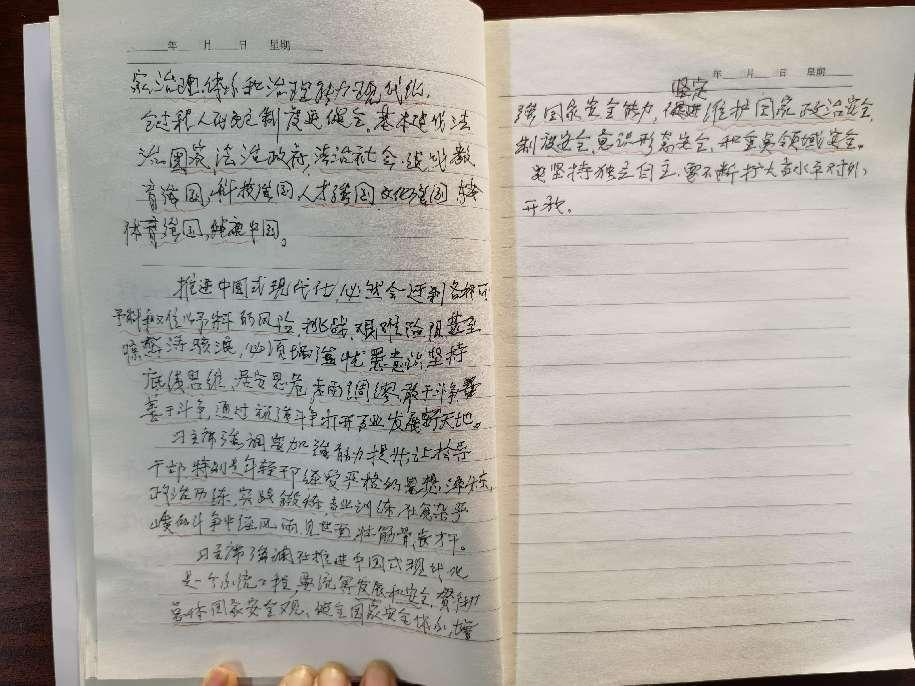 年 月 日 星期
家治理体系和治理能力现代化,
全过程人民民主制度更健全,基本建成法
治国家,法治政府,法治社会,建成教
育强国,科技强国,人才强国,文化强国,
体育强国,健康中国。
推进中国式现代化,必然会遇到各种可
予料和难以予料的风险挑战,艰难险阻甚至
惊涛骇浪,必须增强忧患意识坚持
底线思维,居安思危,未雨绸缪,敢于斗争
善于斗争,通过顽强斗争打开事业发展新天地。
习主席强调要加强能力提升,让领导
干部特别是年轻干部经受严格的思想淬炼,
政治历练,实践锻炼,专业训练,在复杂严
峻的斗争中经风雨,见世面,壮筋骨,长才干。
习主席强调在推进中国式现代化
是一个系统工程,要统筹发展和安全,贯彻
总体国家安全观,健全国家安全体系,增
年 月 日 星期
坚定
强国家安全能力,维护国家政治安全,
制度安全,意识形态安全,和重点领域安全。
要坚持独立自主,要不断扩大高水平对外
开放。